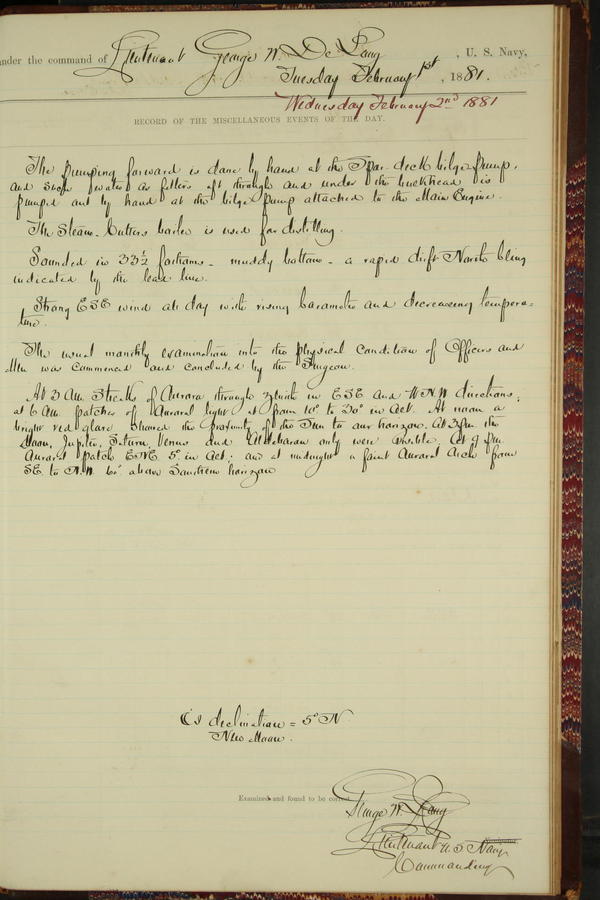 under the command of Lieutenant George W. De Long, U. S. Navy,
Tuesday February 1st, 1881.
Wednesday February 2nd 1881
RECORD OF THE MISCELLANEOUS EVENTS OF THE DAY.
The pumping forward is done by hand at the Spar deck bilge pump,
and such water as filters aft through and under the bulkhead is
pumped out by hand at the bilge pump attached to the Main Engine.
The Steam-Cutters boiler is used for distilling.
Sounded in 33½ fathoms - muddy bottom - a rapid drift North being
indicated by the lead line.
Strong ESE wind all day with rising barometer and decreasing tempera=
ture.
The usual monthly examination into the physical condition of Officers and
Men was commenced and concluded by the Surgeon.
At 3 AM Streaks of Aurora through zenith in ESE and WNW directions;
at 6 AM patches of Auroral light at from 10° to 30° in Alt. At noon a
bright red glare showed the proximity of the Sun to our horizon. At 3 PM the
Moon, Jupiter, Saturn, Venus and Aldebaran only were visible. At 9 PM
Auroral patch ENE 5° in Alt; and at midnight a faint Auroral Arch from
SE to N.W. 6° above Southern horizon
☾'s declination = 5° N
New Moon.
Examined and found to be correct.
George W. De Long
Lieutenant U.S. Navy
Commanding